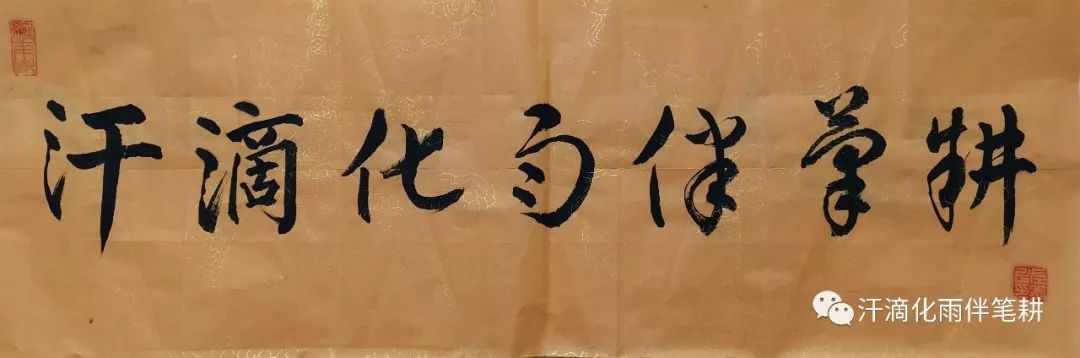 汗滴化雨伴筆耕
汗滴化雨伴笔耕